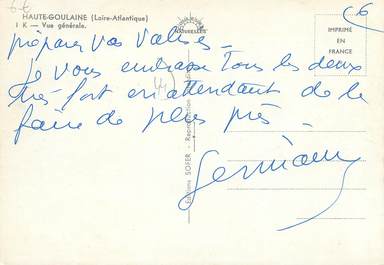 6€
HAUTE-GOULAINE (Loire-Atlantique)
1 K — Vue générale.
C6
IMPRIMÉ
EN
FRANCE
préparer vos valises –
Je vous embrasse tous les deux
très fort en attendant de le
faire de plus près –
Germaine
Editions SOFER - Reproduction